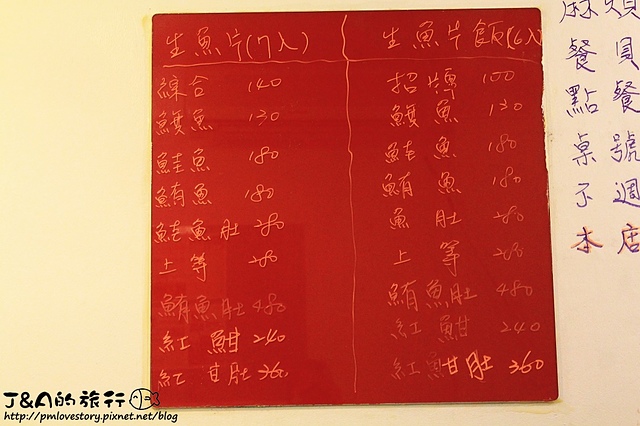 生魚片(7入)
綜合 140
鱘魚 130
鮭魚 180
鮪魚 180
鮭魚肚 280
上等 280
鮪魚肚 480
紅魽 240
紅甘肚 360
生魚片飯(6入)
招牌 100
魚 130
鮭魚 180
鮪魚 180
魚肚 280
上等 280
鮪魚肚 480
紅魽 240
紅魽肚 360
麻煩
餐具
點餐
桌號
不週
本店
J&A的旅行
http://pmlovestory.pixnet.net/blog